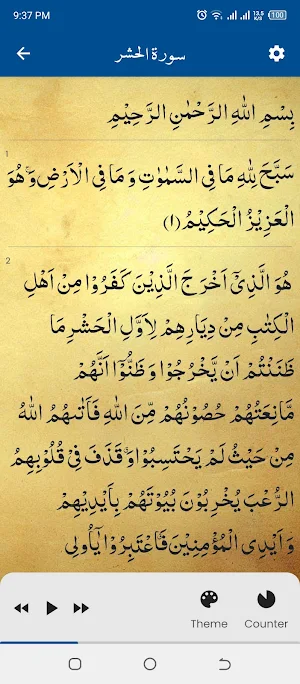 9:37 PM 13.5 K/S 100
سورة الحشر
بِسْمِ اللّٰهِ الرَّحْمٰنِ الرَّحِيْمِ
1
سَبَّحَ لِلّٰهِ مَا فِى السَّمٰوٰتِ وَ مَا فِى الْاَرْضِ ۚ وَ هُوَ
الْعَزِيْزُ الْحَكِيْمُ ﴿۱﴾
2
هُوَ الَّذِىْۤ اَخْرَجَ الَّذِيْنَ كَفَرُوْا مِنْ اَهْلِ
الْكِتٰبِ مِنْ دِيَارِهِمْ لِاَوَّلِ الْحَشْرِ مَا
ظَنَنْتُمْ اَنْ يَّخْرُجُوْا وَ ظَنُّوْۤا اَنَّهُمْ
مَّانِعَتُهُمْ حُصُوْنُهُمْ مِّنَ اللّٰهِ فَاَتٰٮهُمُ اللّٰهُ
مِنْ حَيْثُ لَمْ يَحْتَسِبُوْا وَ قَذَفَ فِىْ قُلُوْبِهِمُ
الرُّعْبَ يُخْرِبُوْنَ بُيُوْتَهُمْ بِاَيْدِيْهِمْ
وَ اَيْدِى الْمُؤْمِنِيْنَ فَاعْتَبِرُوْا يٰۤاُولِى
Theme Counter